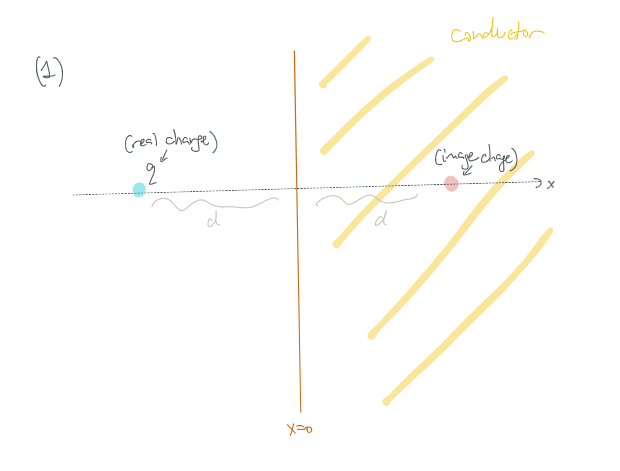 conductor
(1)
(real charge)
q
(image chage)
x
d
d
x=0